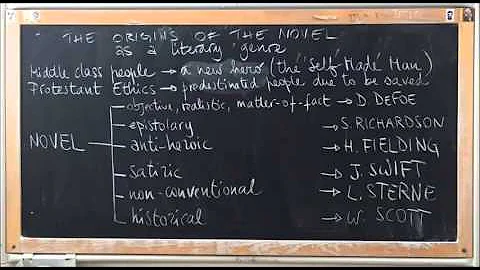 THE ORIGINS OF THE NOVEL
as a literary genre
Middle class people → a new hero (the "Self Made Man)
Protestant Ethics → predestinated people due to be saved
objective, realistic, matter-of-fact → D. DEFOE
epistolary → S. RICHARDSON
NOVEL anti-heroic → H. FIELDING
satiric → J. SWIFT
non-conventional → L. STERNE
historical → W. SCOTT